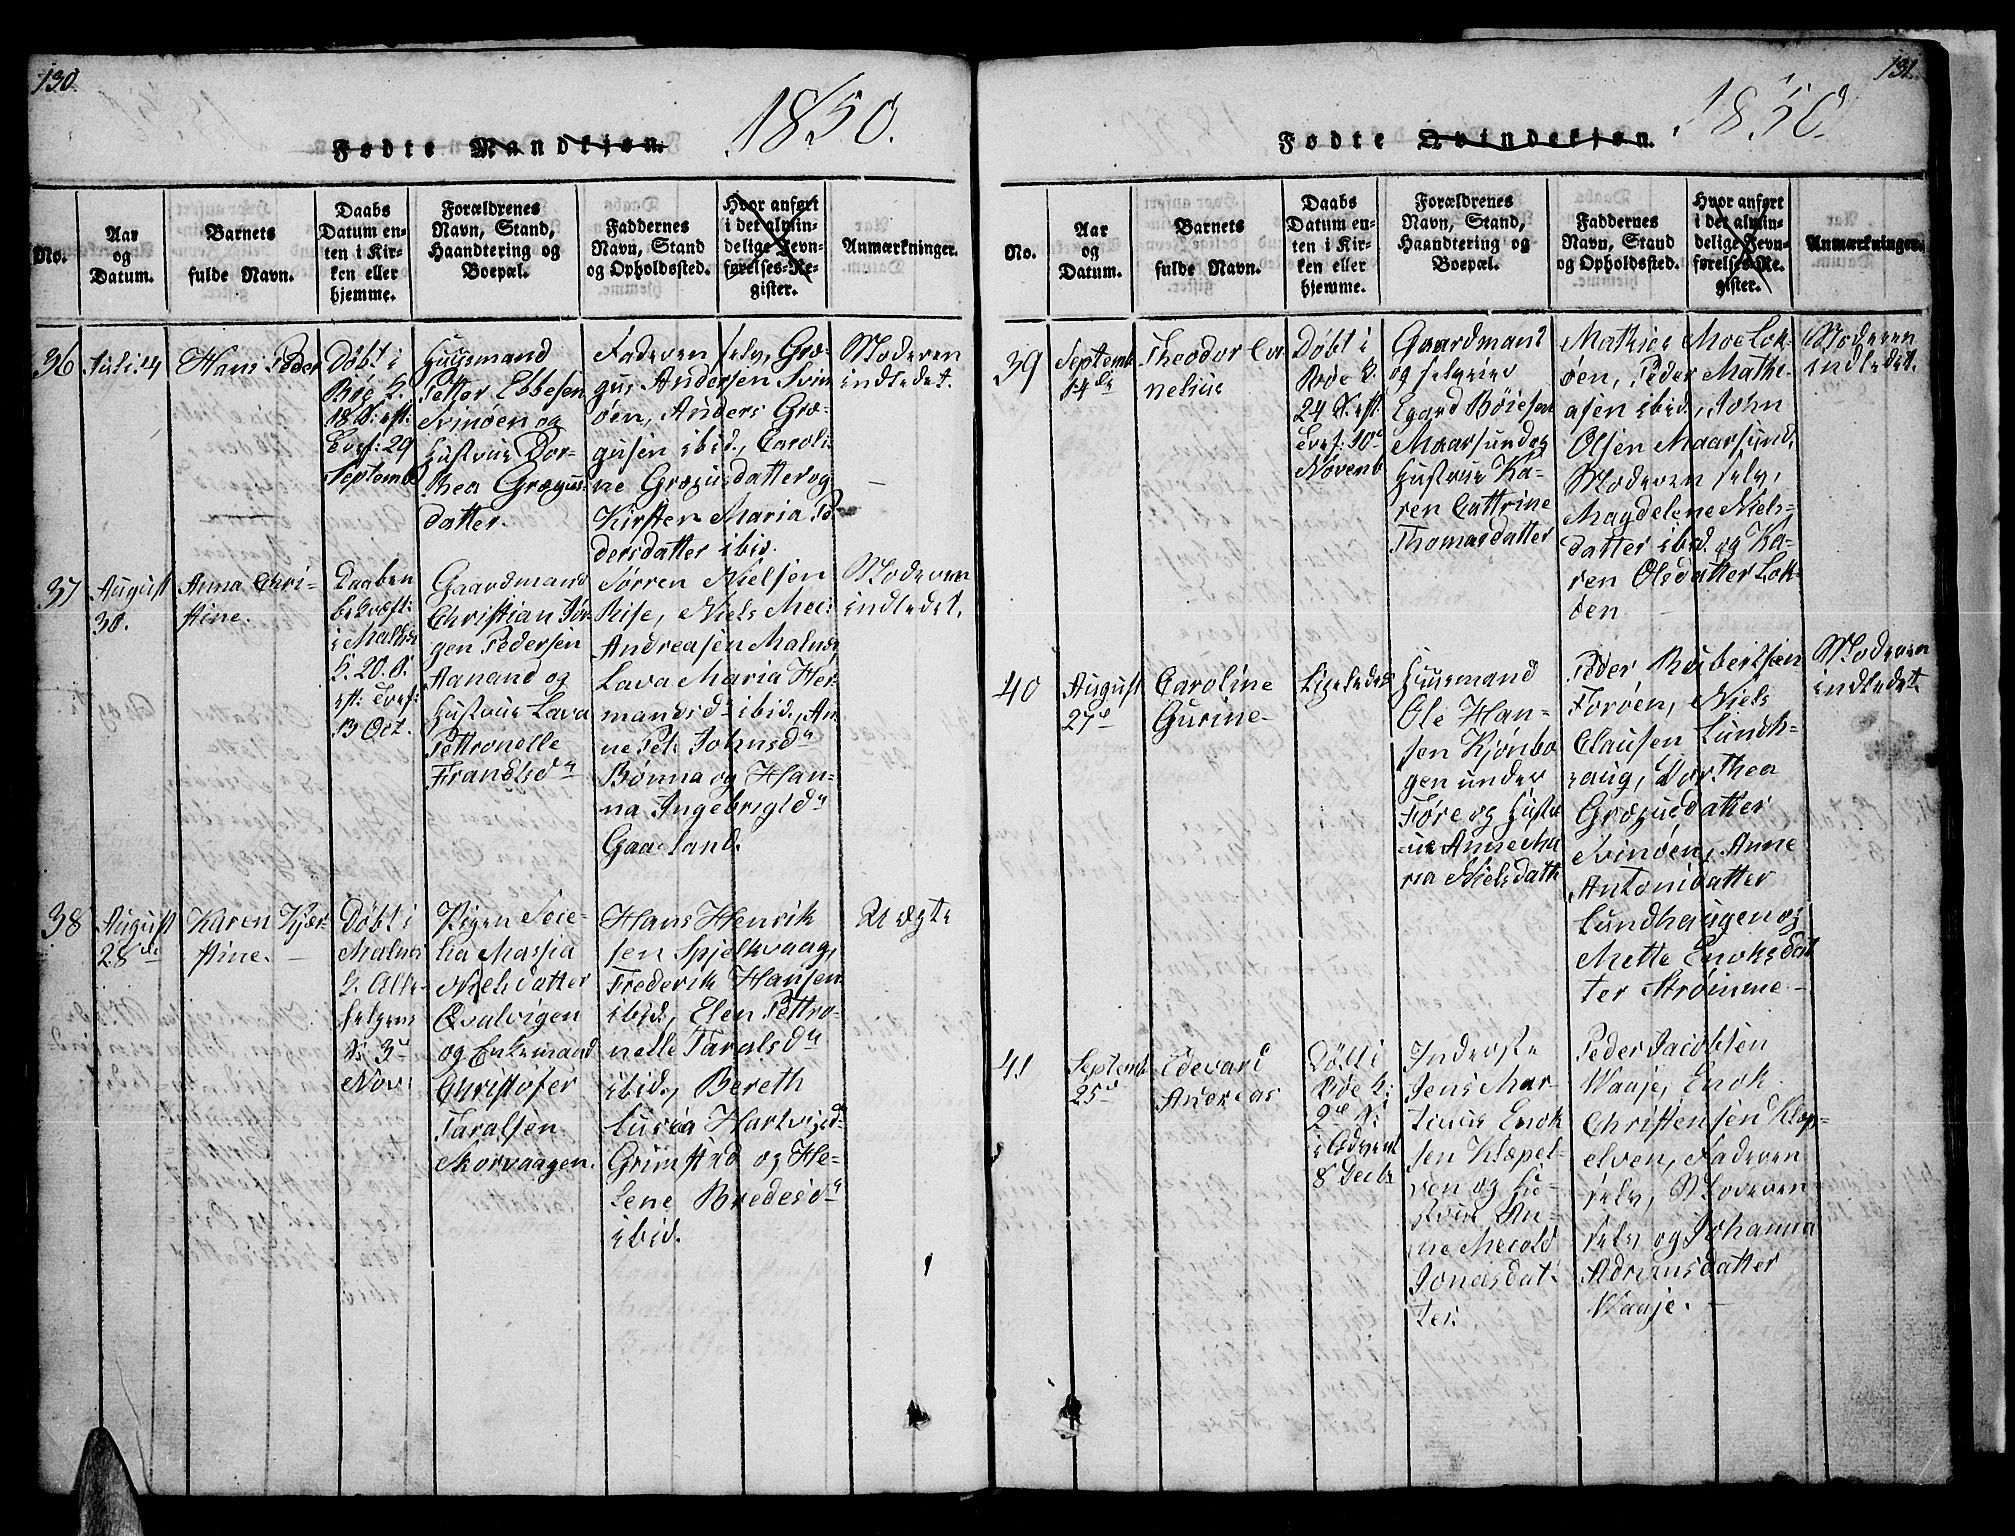 130.
1850.
Fødte Mandkjøn.
No.
Aar
og
Datum.
Barnets
fulde Navn.
Daabs
Datum en-
ten i Kir-
ken eller
hjemme.
Forældrenes
Navn, Stand,
Haandtering og
Boepæl.
Faddernes
Navn, Stand
og Opholdssted.
Hvor anført
i det almin-
delige Jevn-
førelses-Re-
gister.
Anmærkninger.
36
Juli 14
Hans Peder
Døbt i
Bøe K.
18 S. eft:
Evgf: 29
Septembr
Huusmand
Petter Ebbesen
Svinøen og
Hustrue Dor-
thea Græguus-
datter.
Faderen selv, Græ-
gus Andersen Svin
øen, Anders Græ-
gusen ibid., Caroli-
ne Græguusdatter og
Kirsten Maria Pe-
dersdatter ibid.
Moderen
indledet.
37
August
30.
Anna Chri-
stine.
Daaben
bekræft:
i Malnes
K. 20. S.
eft: Evgf:
13 Oct.
Gaardmand
Christian Jør-
gen Pedersen
Aanand og
Hustrue Lava
Pettronelle
Frantsdr
Sørren Nielsen
Rise, Niels Mei:
Andreasen Malnes
Lava Maria Her-
mandsdr ibid., An-
ne Pet: Johnsdr
Bønna og Han-
na Ingebrigtdr
Gaasland.
Moderen
indledet.
38
August
28de
Karen Kjer-
stine.
Døbt i
Malnes
K. Alle-
helgens
S. 3die
Nov:
Pigen Seie-
lia Massia
Nielsdatter
Qvalvigen
og Enkemand
Christofer
Taralsen
Skorvaagen.
Hans Henrik
sen Spjelkvaag,
Frederik Hansen
ibid., Elen Pettro-
nelle Taralsdr
ibid., Bereth
Lusia Hartvigd-
Grimstad og He-
lene Bredesdr
ibid.
Uægte
131.
1850.
Fødte Qvindekjøn.
No.
Aar
og
Datum.
Barnets
fulde Navn.
Daabs
Datum en-
ten i Kir-
ken eller
hjemme.
Forældrenes
Navn, Stand,
Haandtering og
Boepæl.
Faddernes
Navn, Stand
og Opholdssted.
Hvor anført
i det almin-
delige Jevn-
førelses-Re-
gister.
Anmærkninger.
39
Septemb
14de
Theodor Cor
nelius
Døbt i
Bøe K.
24 S. eft:
Evgf: 10de
Novemb
Gaardmand
og selveier
Egard Bøiesen
Maarsund og
Hustrue Ka-
ren Cattrine
Thomasdatter
Mathias Moe Lok-
øen, Peder Mathi-
asen ibid., John
Olsen Maarsund,
Moderen selv,
Magdelene Niels-
datter ibid. og Ka-
ren Olsdatter Lok-
øen
Moderen
indledet.
40
August
27de
Caroline
Gurine
Ligeledes
Huusmand
Ole Han-
sen Kjønbo
gen under
Føre og Hustr
ue Anne Ma
ria Nielsdatt
Peder Robertsen
Forøen, Niels
Clausen Lundh-
aug, Dorthea
Græguusdatter
Svinøen, Anne
Antonsdatter
Lundhaugen og
Mette Enoksdat
ter Strømme
Moderen
indledet
41
Septemb
25de
Edevard
Andreas
Døbt i
Bøe K:
2den S.
i Advent
8 Decbr
Inderste
Jens Mar-
tinus Enok
sen Klæpel-
ven og Hu-
strue An-
ne Merold
Jonasdat-
ter.
Peder Jacobsen
Waaje, Enok
Christensen Klæp-
elven, Faderen
selv, Moderen
selv og Johanna
Adriansdatter
Waaje.